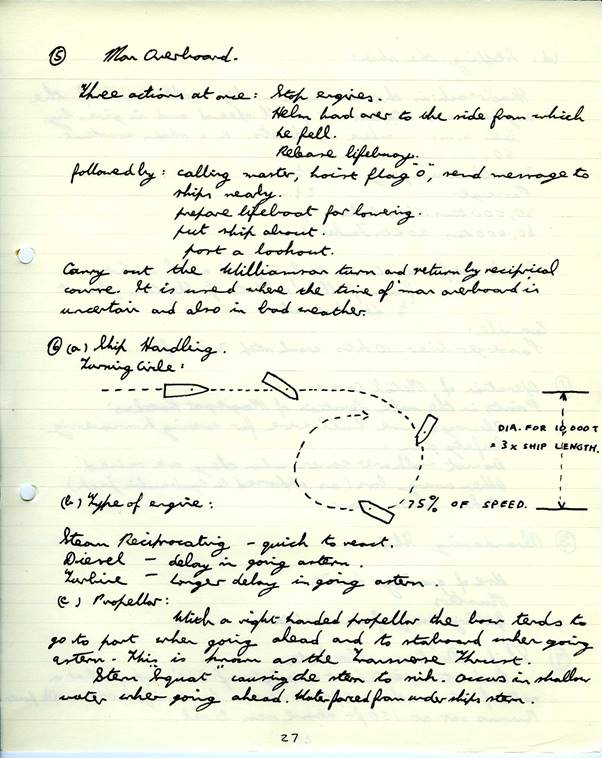 ⑤ Man Overboard.
Three actions at once: Stop engines.
Helm hard over to the side from which
he fell.
Release lifebuoy.
followed by: calling master, hoist flag "O", send message to
ships nearby.
prepare lifeboat for lowering.
put ship about.
post a lookout.
Carry out the Williamson turn and return by reciprical
course. It is used where the time of man overboard is
uncertain and also in bad weather.
⑥ (a) Ship Handling.
Turning Circle:
DIA. FOR 10,000 T
= 3 x SHIP LENGTH.
75% OF SPEED.
(b) Type of engine:
Steam Reciprocating - quick to react.
Diesel - delay in going astern.
Turbine - Longer delay in going astern.
(c) Propellor:
With a right handed propellor the bow tends to
go to port when going ahead and to starboard when going
astern. This is known as the Transverse Thrust.
Stern Squat causing the stern to sink. Occurs in shallow
water when going ahead. Water forced from under ships stern.
27